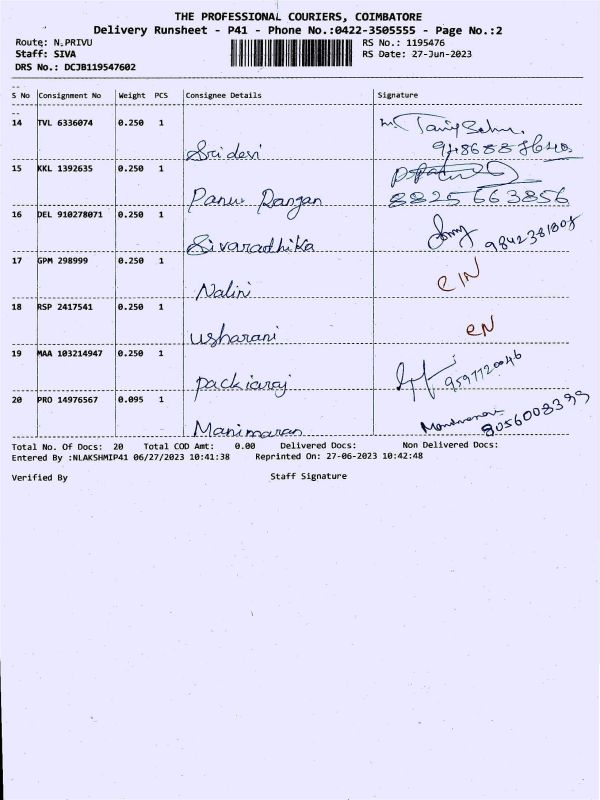 THE PROFESSIONAL COURIERS, COIMBATORE
Delivery Runsheet - P41 - Phone No.:0422-3505555 - Page No.:2
Route: N.PRIVU RS No.: 1195476
Staff: SIVA RS Date: 27-Jun-2023
DRS No.: DCJB119547602
S No Consignment No Weight PCS Consignee Details Signature
14 TVL 6336074 0.250 1
Sridevi
15 KKL 1392635 0.250 1
Panu Rangan 8825663856
16 DEL 910278071 0.250 1
Sivaradhika 9842381008
17 GPM 298999 0.250 1
Nalini
18 RSP 2417541 0.250 1
usharani
19 MAA 103214947 0.250 1
packiaraj
20 PRO 14976567 0.095 1
Manimaran 8056008399
Total No. Of Docs: 20 Total COD Amt: 0.00 Delivered Docs: Non Delivered Docs:
Entered By :NLAKSHMIP41 06/27/2023 10:41:38 Reprinted On: 27-06-2023 10:42:48
Verified By Staff Signature